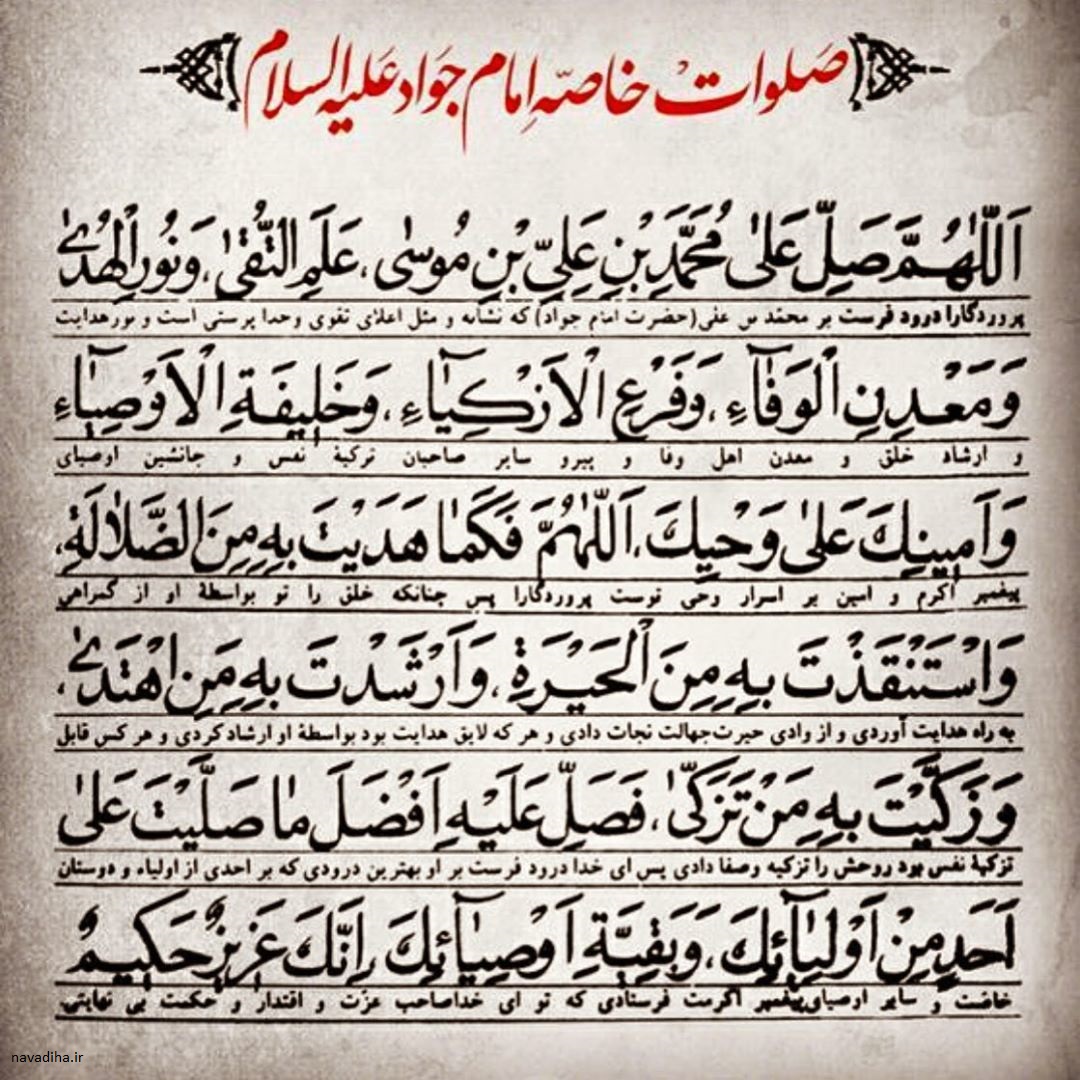 صَلَواتْ خاصّهِ اِمام جَواد عَلیهِ السلام
اَللّٰهُمَّ صَلِّ عَلیٰ مُحَمَّدِ بْنِ عَلِيِّ بْنِ مُوسٰی، عَلَمِ التُّقیٰ، وَنُورِ الْهُدیٰ
پروردگارا درود فرست بر محمّد بن علی (حضرت امام جواد) که نشانه و مثل اعلای تقوی وخدا پرستی است و نور هدایت
وَمَعْدِنِ الْوَفٰآءِ، وَفَرْعِ الْاَزْکِیٰآءِ، وَخَلِیفَةِ الْاَوْصِیٰآءِ
و ارشاد خلق و معدن اهل وفا و پیرو سایر صاحبان تزکیهٔ نفس و جانشین اوصیای
وَاَمِینِكَ عَلیٰ وَحْیِكَ، اَللّٰهُمَّ فَکَمٰا هَدَیْتَ بِهِ مِنَ الضَّلاٰلَةِ،
پیغمبر اکرم و امین بر اسرار وحی توست پروردگارا پس چنانکه خلق را تو بواسطهٔ او از گمراهی
وَاسْتَنْقَذْتَ بِهِ مِنَ الْحَیْرَةِ، وَاَرْشَدْتَ بِهِ مَنِ اهْتَدیٰ،
به راه هدایت آوردی و از وادی حیرت‌جهالت نجات دادی و هر که لایق هدایت بود بواسطهٔ او ارشاد کردی و هر کس قابل
وَزَکَّیْتَ بِهِ مَنْ تَزَکّیٰ، فَصَلِّ عَلَیْهِ اَفْضَلَ مٰا صَلَّیْتَ عَلیٰ
تزکیهٔ نفس بود روحش را تزکیه وصفا دادی پس ای خدا درود فرست بر او بهترین درودی که بر احدی از اولیاء و دوستان
اَحَدٍ مِنْ اَوْلِیٰآئِكَ، وَبَقِیَّةِ اَوْصِیٰآئِكَ، اِنَّكَ عَزِیزٌ حَکِیمٌ
خاصّت و سایر اوصیای‌پیغمبر اکرمت فرستادی که تو ای خداصاحب عزّت و اقتدار و حکمت بی نهایتی
navadiha.ir